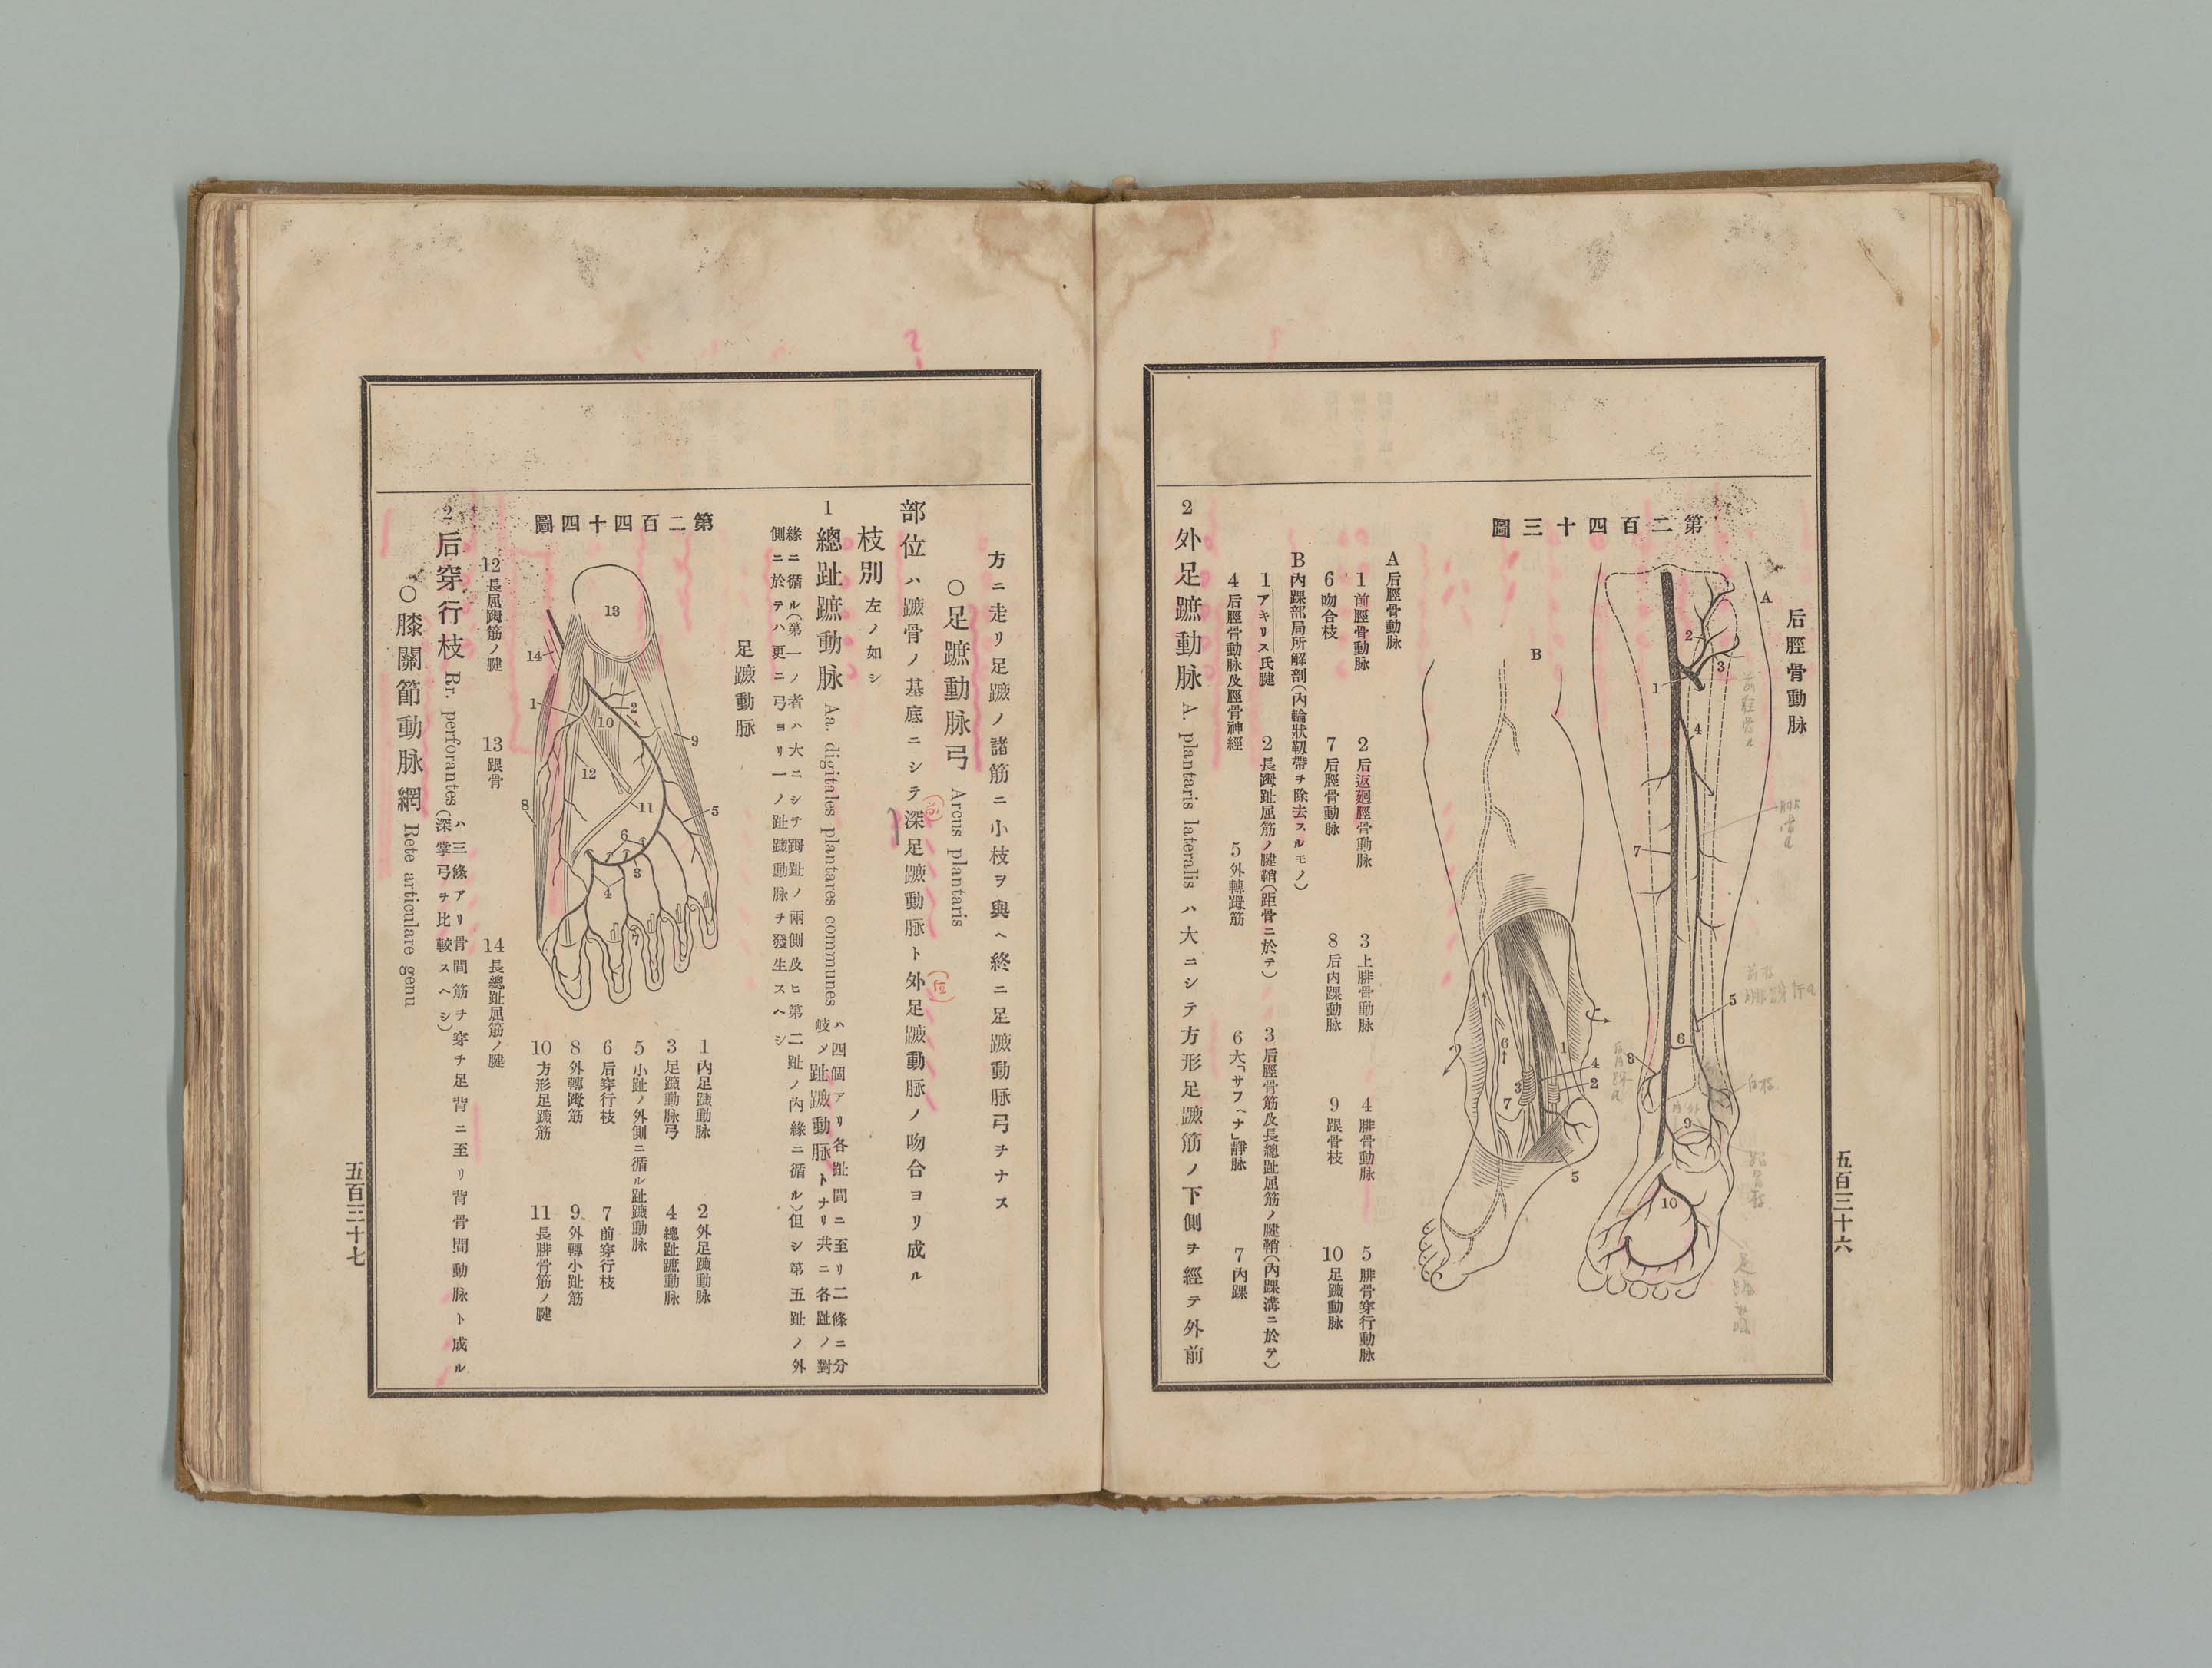 后脛骨動脉
第二百四十三圖
A
B
1
2
3
4
5
6
7
8
9
10
1
2
3
4
5
6
7
A后脛骨動脉
1前脛骨動脉 2后返廻脛骨動脉 3上腓骨動脉 4腓骨動脉 5腓骨穿行動脉
6吻合枝 7后脛骨動脉 8后內踝動脉 9跟骨枝 10足蹠動脉
B內踝部局所解剖(內輪狀靱帶ヲ除去スルモノ)
1アキリス氏腱 2長𧿹趾屈筋ノ腱鞘(距骨ニ於テ) 3后脛骨筋及長總趾屈筋ノ腱鞘(內踝溝ニ於テ)
4后脛骨動脉及脛骨神經 5外轉𧿹筋 6大「サフヘナ」靜脉 7內踝
2外足蹠動脉 A. plantaris lateralis ハ大ニシテ方形足蹠筋ノ下側ヲ經テ外前
五百三十六
方ニ走リ足蹠ノ諸筋ニ小枝ヲ與ヘ終ニ足蹠動脉弓ヲナス
○足蹠動脉弓 Arcus plantaris
部位ハ蹠骨ノ基底ニシテ深足蹠動脉ト外足蹠動脉ノ吻合ヨリ成ル
枝別左ノ如シ
1總趾蹠動脉 Aa. digitales plantares communes ハ四個アリ各趾間ニ至リ二條ニ分
岐シ趾蹠動脉トナリ共ニ各趾ノ對
緣ニ循ル(第一ノ者ハ大ニシテ𧿹趾ノ兩側及ヒ第二趾ノ內緣ニ循ル)但シ第五趾ノ外
側ニ於テハ更ニ弓ヨリ一ノ趾蹠動脉ヲ發生スヘシ
足蹠動脉
第二百四十四圖
13
14
1
2
10
9
12
8
11
5
6
3
4
7
1內足蹠動脉 2外足蹠動脉
3足蹠動脉弓 4總趾蹠動脉
5小趾ノ外側ニ循ル趾蹠動脉
6后穿行枝 7前穿行枝
8外轉𧿹筋 9外轉小趾筋
10方形足蹠筋 11長腓骨筋ノ腱
12長屈𧿹筋ノ腱 13跟骨 14長總趾屈筋ノ腱
2后穿行枝 Rr. perforantes ハ三條アリ骨間筋ヲ穿チ足背ニ至リ背骨間動脉ト成ル
(深掌弓ヲ比較スヘシ)
○膝關節動脉網 Rete articulare genu
五百三十七